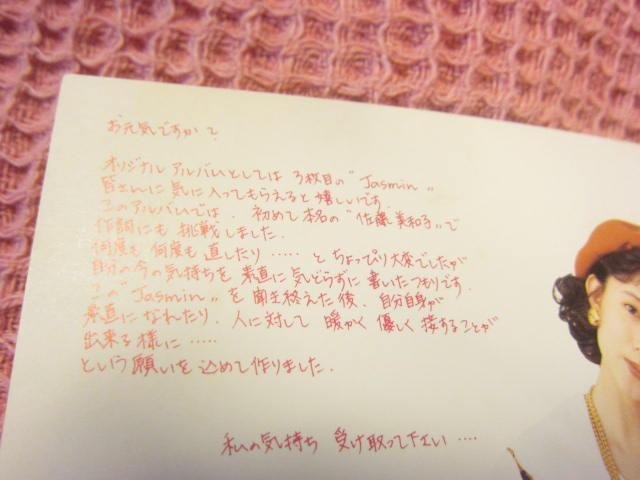 お元気ですか?
オリジナルアルバムとしては 3枚目の"Jasmin"
皆さんに気に入ってもらえると嬉しいです.
このアルバムでは、初めて本名の"佐藤美和子"で
作詞にも 挑戦しました.
何度も 何度も 直したり ‥‥‥ と ちょっぴり大変でしたが
自分の今の気持ちを 素直に 気どらずに 書いたつもりです.
この"Jasmin"を 聞き終えた後、自分自身が
素直になれたり、人に対して 暖かく 優しく 接することが
出来る様に ‥‥‥
という願いを 込めて作りました.
私の気持ち 受け取って下さい ‥‥